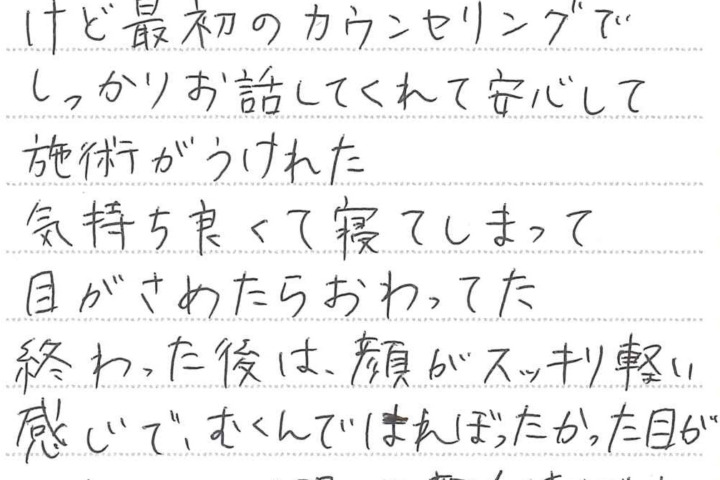 けど最初のカウンセリングで
しっかりお話してくれて安心して
施術がうけれた
気持ち良くて寝てしまって
目がさめたらおわってた
終わった後は、顔がスッキリ軽い
感じで、むくんではれぼったかった目が